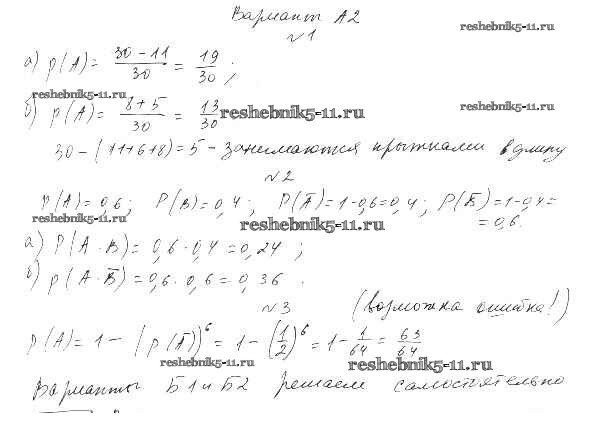 Вариант А2
reshebnik5-11.ru
№1
а) p(A) = (30-11)/30 = 19/30 ;
reshebnik5-11.ru
reshebnik5-11.ru
б) p(A) = (8+5)/30 = 13/30
reshebnik5-11.ru
30-(11+6+8)=5 - занимаются прыжками в длину
№2
p(A)=0,6; P(B)=0,4; P(Ā)=1-0,6=0,4; P(B̄)=1-0,4=
=0,6.
reshebnik5-11.ru
reshebnik5-11.ru
а) P(A·B)=0,6·0,4=0,24;
б) p(A·B̄)=0,6·0,6=0,36.
№3 (возможна ошибка!)
p(A)=1-(p(Ā))⁶=1-(1/2)⁶=1-1/64=63/64
reshebnik5-11.ru
reshebnik5-11.ru
Варианты Б1 и Б2 решаем самостоятельно